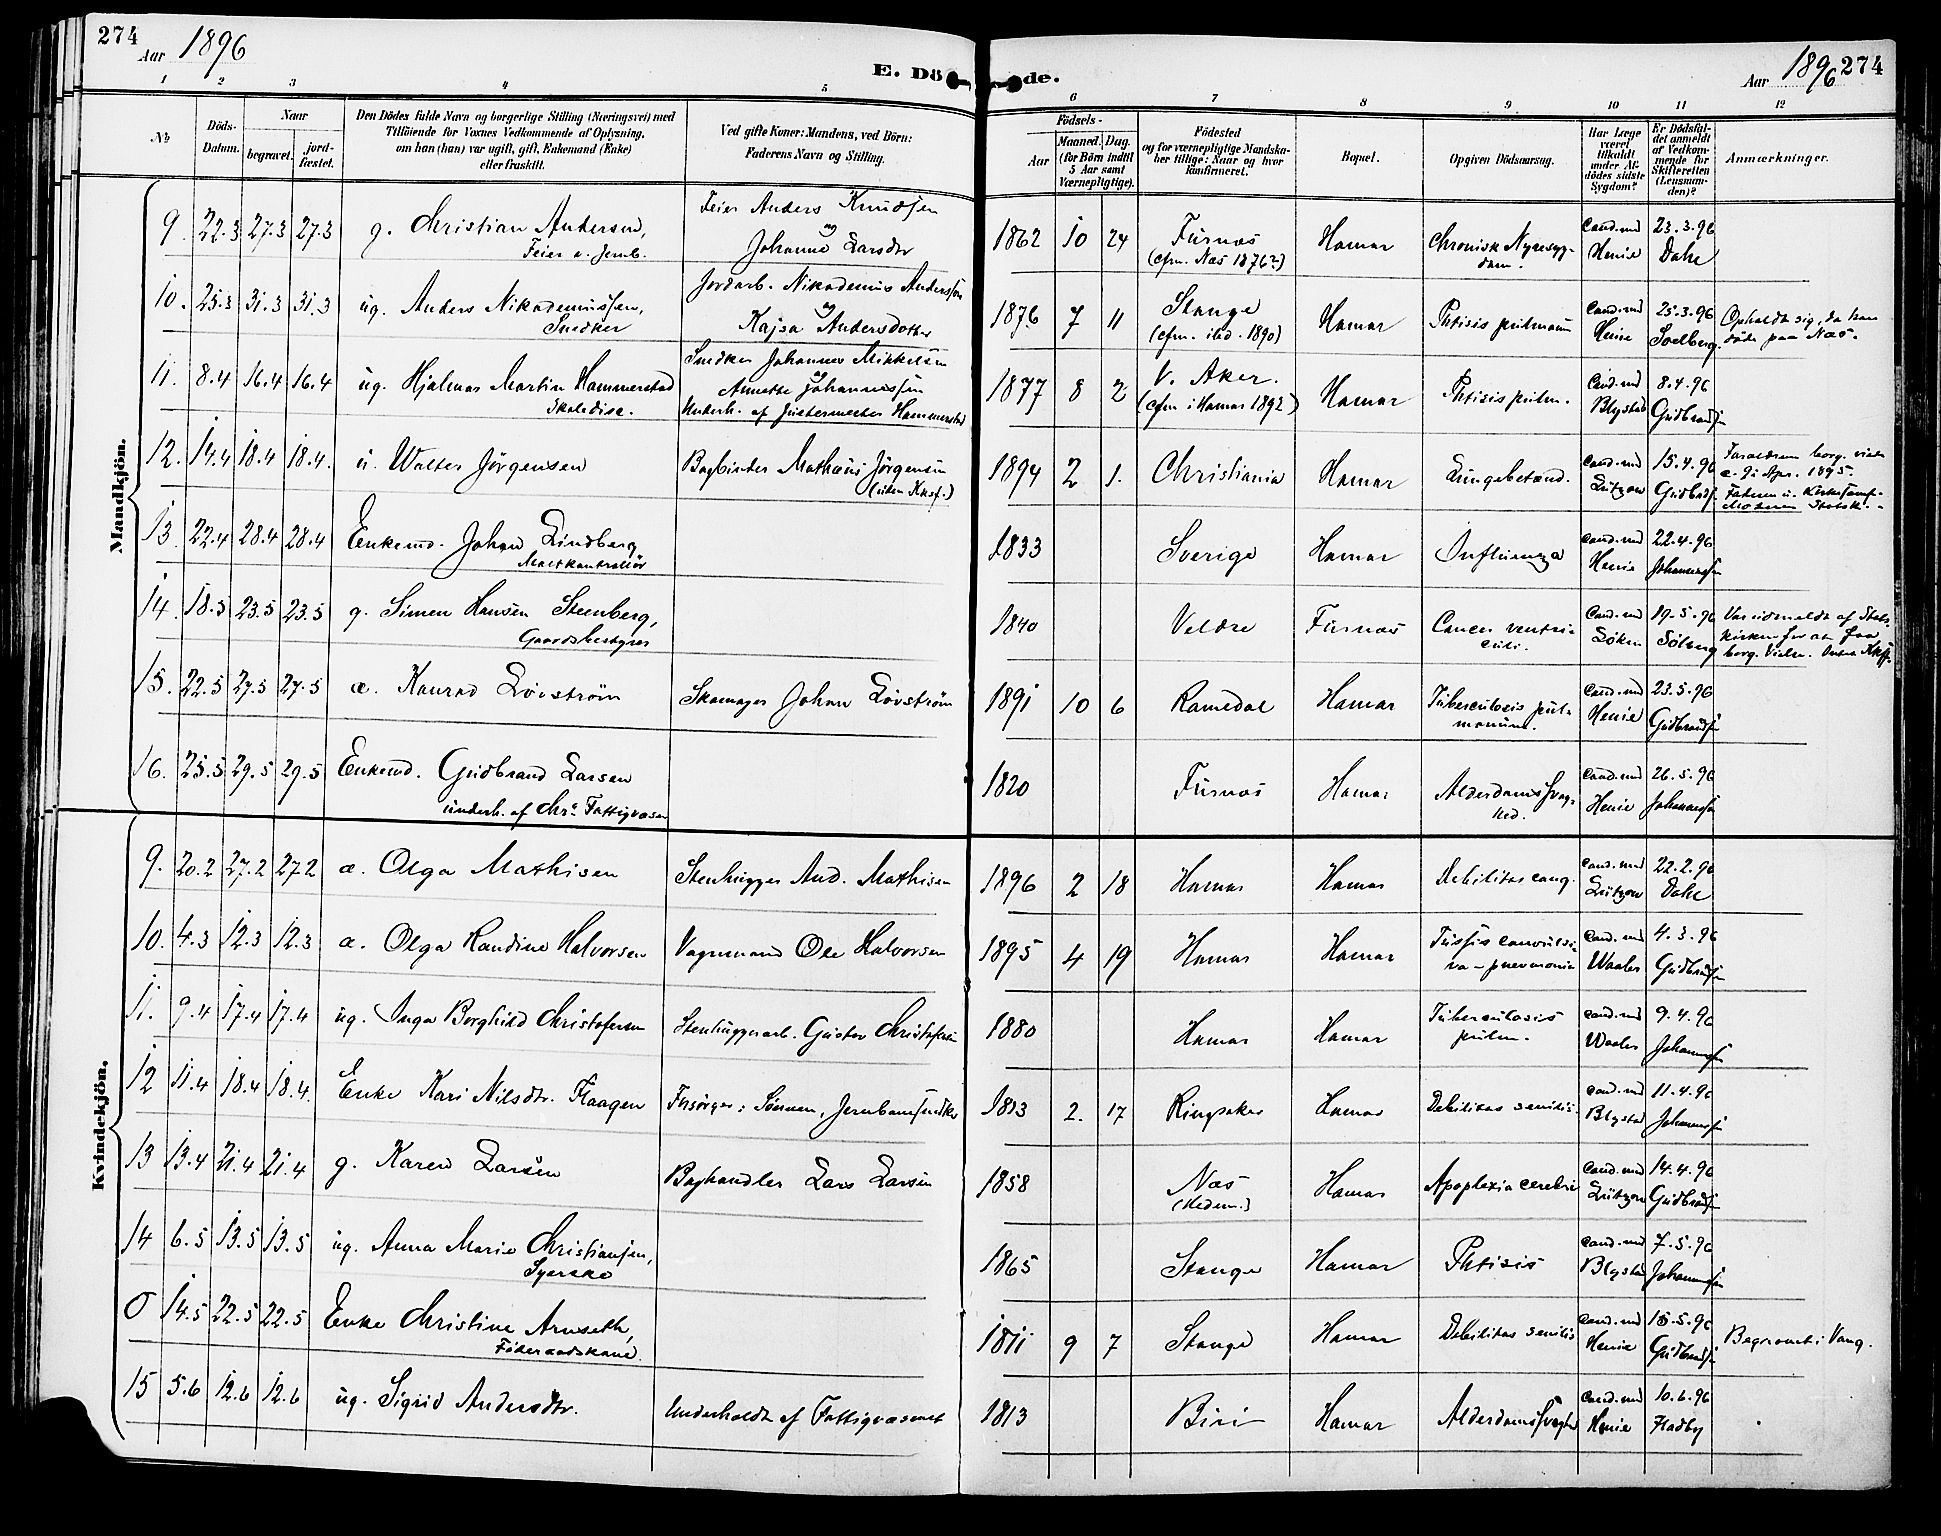 274
Aar 1896
E. Döde.
Aar 1896
274
1 2 3 4 5 6 7 8 9 10 11 12
No
Döds-
Datum.
Naar
begravet.
jord-
fæstet.
Den Dödes fulde Navn og borgerlige Stilling (Næringsvei) med
Tilföiende for Voxnes Vedkommende af Oplysning,
om han (hun) var ugift, gift, Enkemand (Enke)
eller fraskilt.
Ved gifte Koner: Mandens, ved Börn:
Faderens Navn og Stilling.
Födsels-
Aar
Maaned. Dag.
(for Börn indtil
5 Aar samt
Værnepligtige).
Födested
og for værnepligtige Mandska-
ber tillige: Naar og hvor
konfirmeret.
Bopæl.
Opgiven Dödsaarsag.
Har Læge
været
tilkaldt
under Af-
dödes sidste
Sygdom?
Er Dödsfal-
det anmeldt
af Vedkom-
mende for
Skifteretten
(Lensman-
den)?
Anmærkninger.
Mandkjön.
9. 22.3 27.3 27.3 g. Christian Andersen, Feier v. Jernb. Feier Anders Knudsen og Johanne Larsdtr 1862 10 24 Furnæs (cfm. Næs 1876?) Hamar Chronisk Nyresygdom. Cand. med Henie 23.3.96 Dahl
10. 25.3 31.3 31.3 ug. Anders Nikodemussen, Snedker Jordarb. Nikodemus Andersson og Kajsa Andersdotter 1876 7 11 Stange (cfm. ibid. 1890) Hamar Phtisis pulmonum Cand. med Henie 25.3.96 Soelberg. Opholdt sig, da han döde paa Næs.
11. 8.4 16.4 16.4 ug. Hjalmar Martin Hammerstad Skoledisc. Snedker Johannes Mikkelsen og Annette Johannessen Underh. af Justermester Hammerstad 1877 8 2 V. Aker. (cfm i Hamar 1892) Hamar Phtisis pulm. Cand. med Blystad 8.4.96 Gudbrandsen
12. 14.4 18.4 18.4. u. Walter Jörgensen Bogbinder Mathæus Jörgensen (uden Kksf.) 1894 2 1. Christiania Hamar Lungebetænd. Cand. med Lützow 15.4.96 Gudbrdsn Forældrene borg. viede a. 9i Apr. 1895.
13. 22.4 28.4 28.4 Enkemd. Johan Lindberg Maltkontrollör 1833 Sverige Hamar Influenza cand. med Henie 22.4.96 Johannessen
14. 18.5 23.5 23.5 g. Simen Hansen Steenberg, Gaardsbestyrer 1840 Veldre Furnæs Cancer ventriculi. Cand. med Löken 19.5.96 Solberg Var udmeldt af Statskirken for at faa borg. Vielse.
15. 22.5 27.5 27.5 æ. Konrad Lövström Skomager Johan Lövström 1891 10 6 Romedal Hamar Tuberculosis pulmonum. Cand. med Henie 23.5.96 Gudbrandsn
16. 25.5 29.5 29.5 Enkemd. Gudbrand Larsen underh. af Chra Fattigvæsen 1820 Furnæs Hamar Alderdomssvaghed. Cand. med Henie 26.5.96 Johannessn
Kvindekjön.
9. 20.2 27.2 27.2 æ. Olga Mathisen Stenhugger And. Mathisen 1896 2 18 Hamar Hamar Debilitas cong. cand. med Lützow 22.2.96 Dahl
10. 4.3 12.3 12.3 æ. Olga Randine Halvorsen Vognmand Ole Halvorsen 1895 4 19 Hamar Hamar Tussis convulsiva - pneumonia Cand. med Waaler 4.3.96 Gudbrandsn
11. 9.4 17.4 17.4 ug. Inga Borghild Christofersen Stenhuggerarb. Gustav Christofersen 1880 Hamar Hamar Tuberculosis pulm. cand. med Waaler 9.4.96 Johannessn
12 11.4 18.4 18.4. Enke Kari Nilsdtr. Haagen Forsörger: Sönnen, Jernbanesnedker 1813 2. 17 Ringsaker Hamar Debilitas senilis. Cand. med Blystad 11.4.96 Johannessn
13 13.4 21.4 21.4 g. Karen Larsen Boghandler Lars Larsen 1858 Næs (Hedem.) Hamar Apoplexia cerebri Cand. med Lützow 14.4.96 Gudbrandsn
14 6.5 13.5 13.5 ug. Anna Marie Christiansen, Syerske 1865 Stange Hamar Phtisis cand. med Blystad 7.5.96 Johannessn
0 14.5 22.5 22.5 Enke Christine Arnseth, Föderaadskone. 1811 9 7 Stange Hamar Debilitas senilis cand. med Henie 15.5.96 Gudbrandsn Begravet i Vang.
15 5.6 12.6 12.6 ug. Sigrid Andersdtr. Underholdt af Fattigvæsenet 1813 Biri Hamar Alderdomssvaghd cand. med Henie 10.6.96 Fladby